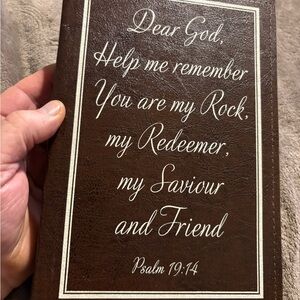 Dear God,
Help me remember
You are my Rock,
my Redeemer,
my Saviour
and Friend
Psalm 19:14